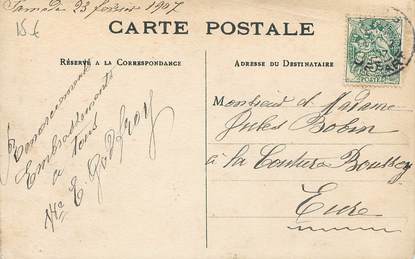 Samedi 23 février 1907
15 €
CARTE POSTALE
RÉSERVÉ A LA CORRESPONDANCE
ADRESSE DU DESTINATAIRE
Remerciements
Embrassements
à tous
E. Godfroy
Monsieur et Madame
Jules Bobin
à la Couture Boussey
Eure
POSTES